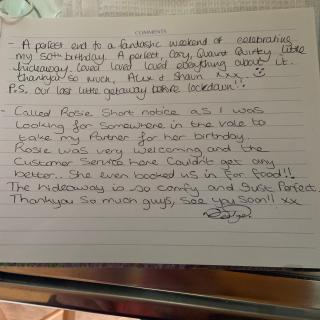 COMMENTS
- A perfect end to a fantastic weekend of celebrating
my 50th birthday. A perfect, Cosy, Quaint Quirky little
hideaway. Loved loved loved everything about it.
thankyou so much, Alex & Shaun xxx
P.S, our last little getaway before lockdown!
- Called Rosie Short notice as I was
Looking for Somewhere in the vale to
take my Partner for her birthday.
Rosie was very welcoming and the
Customer Service here Couldn't get any
better.. She even booked us in for food!!
The hideaway is so comfy and Just Perfect.
Thankyou so much guys, see you soon!! xx